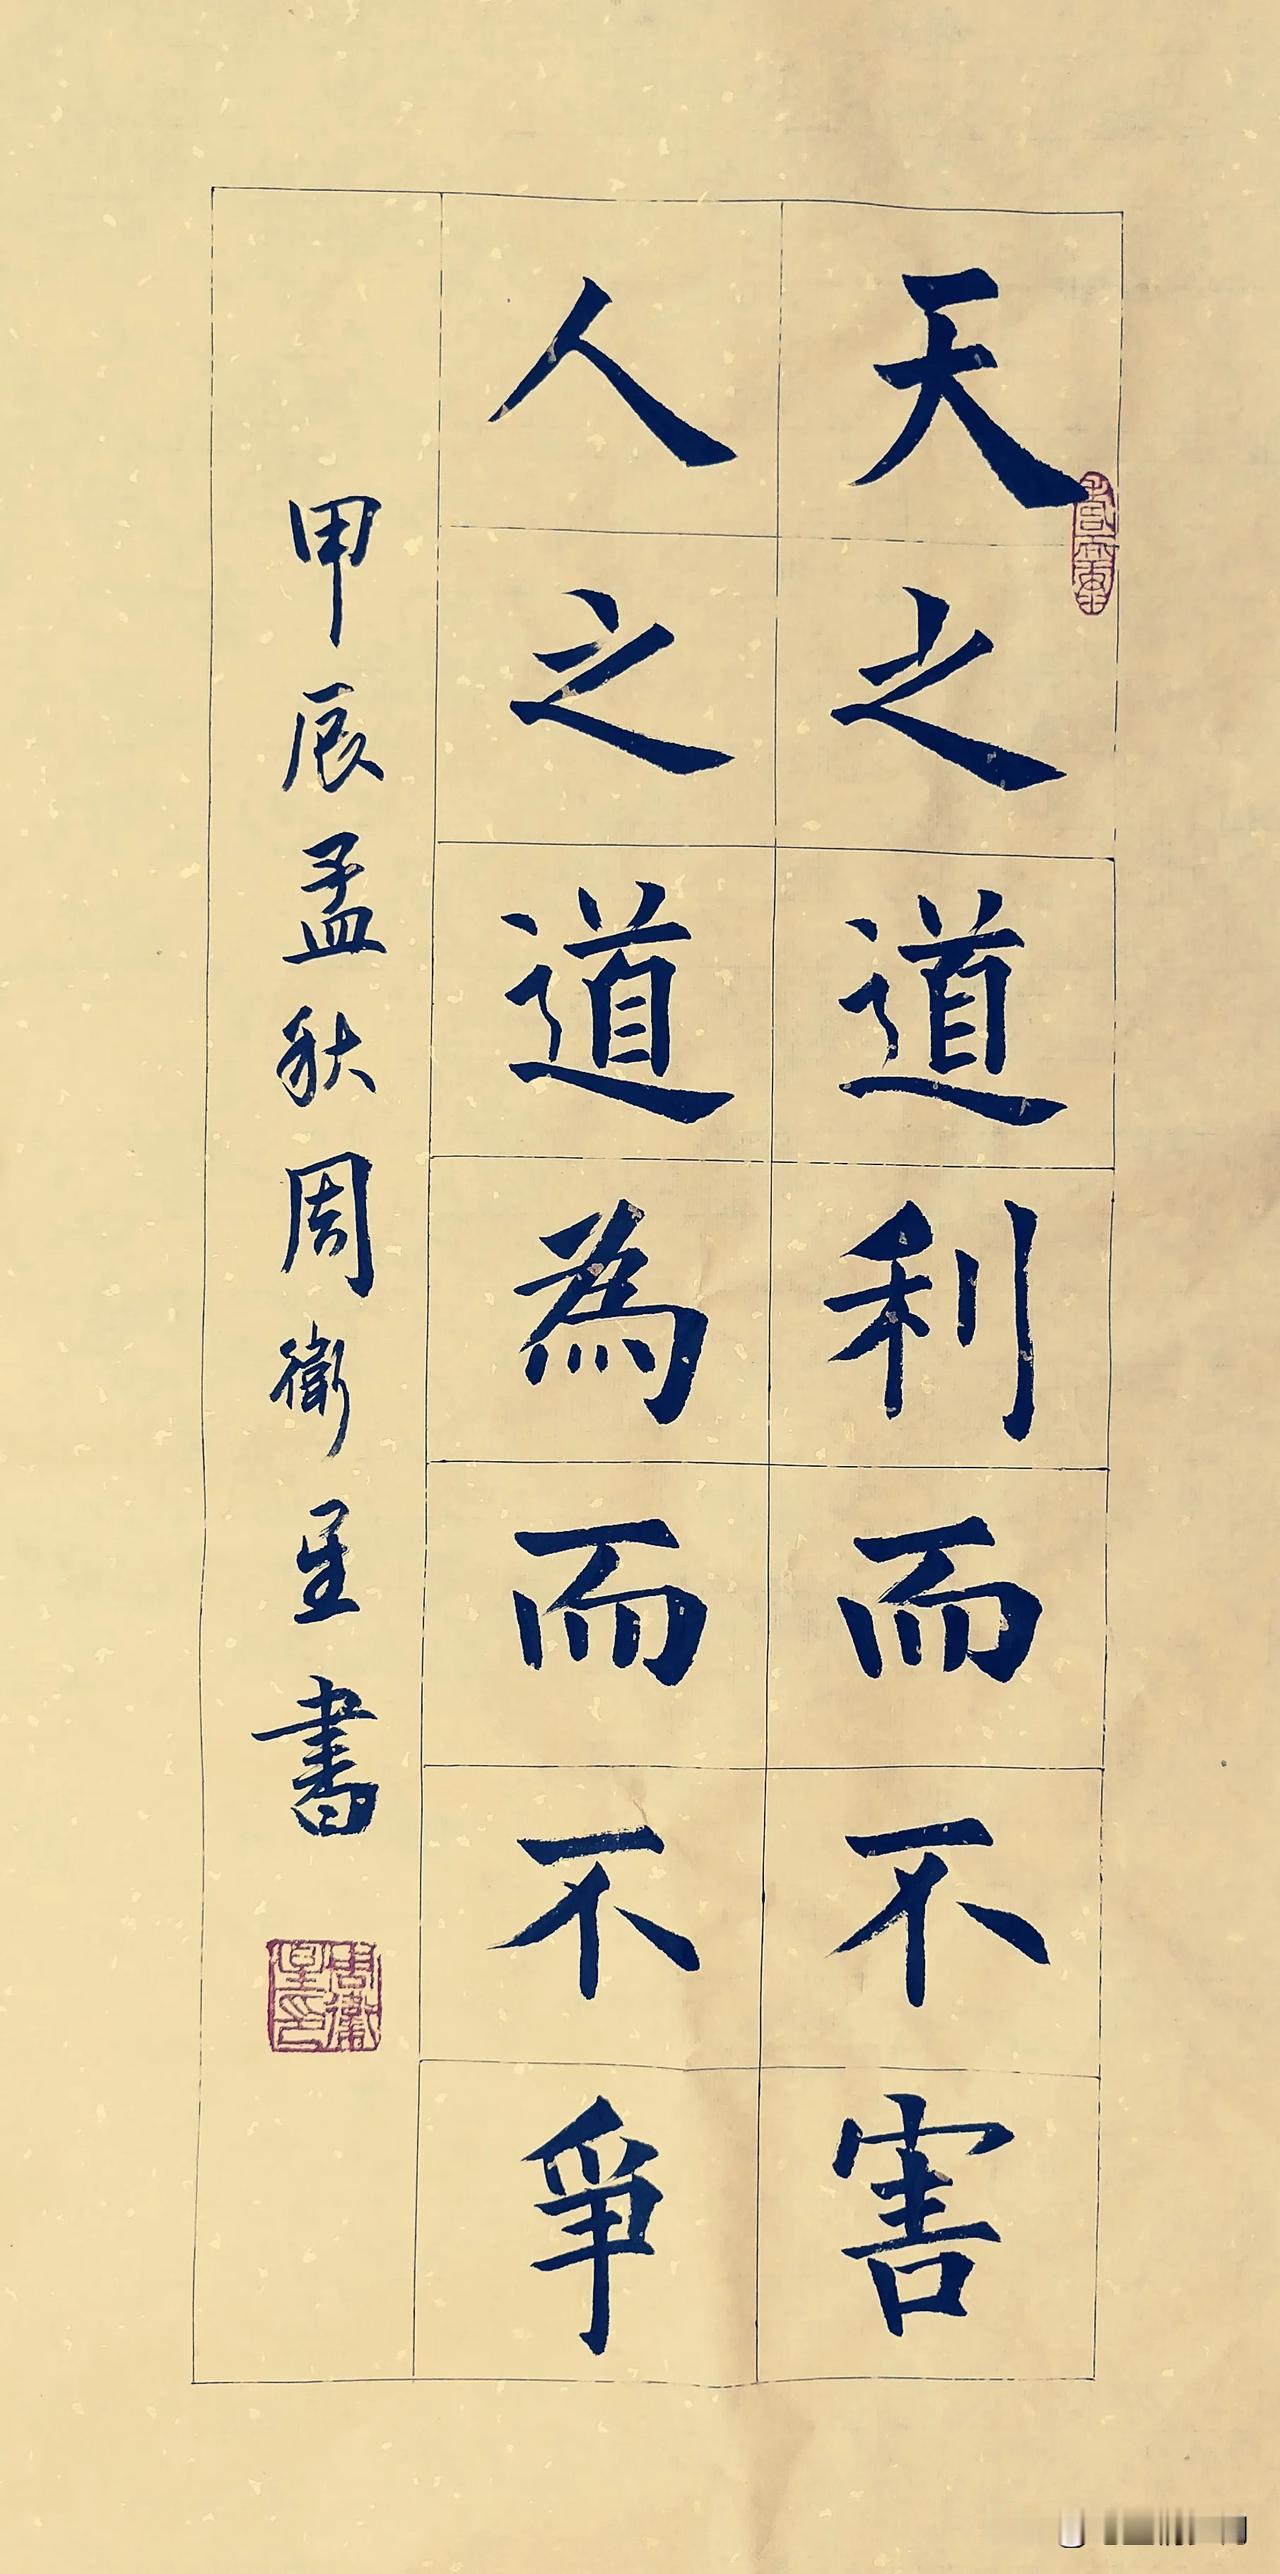 天之道利而不害
人之道為而不爭
甲辰孟秋周衛星書
周衛星印